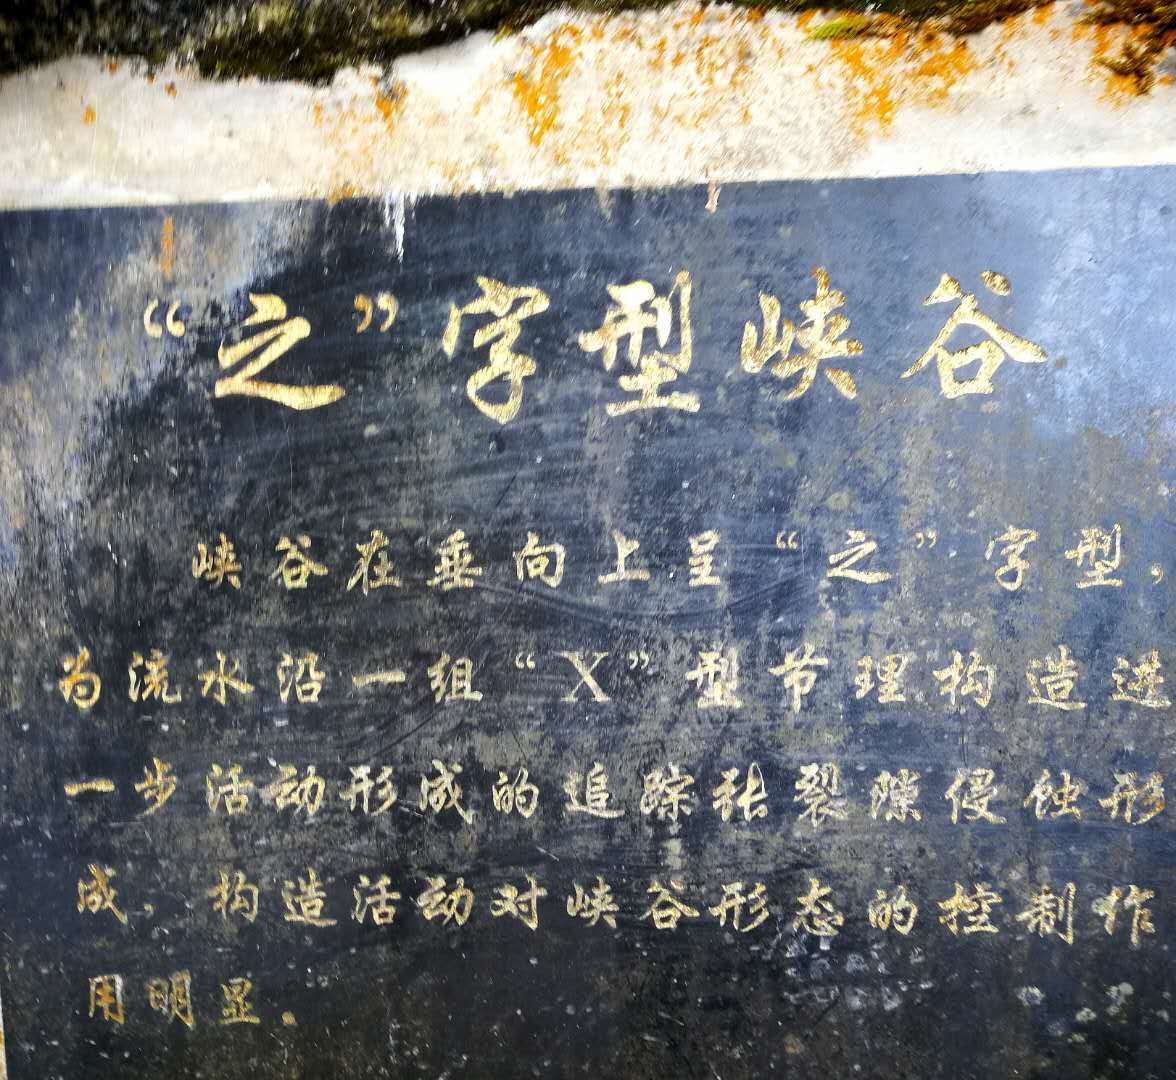 “之”字型峡谷
峡谷在垂向上呈“之”字型,
为流水沿一组“X”型节理构造进
一步活动形成的追踪张裂隙侵蚀形
成,构造活动对峡谷形态的控制作
用明显。